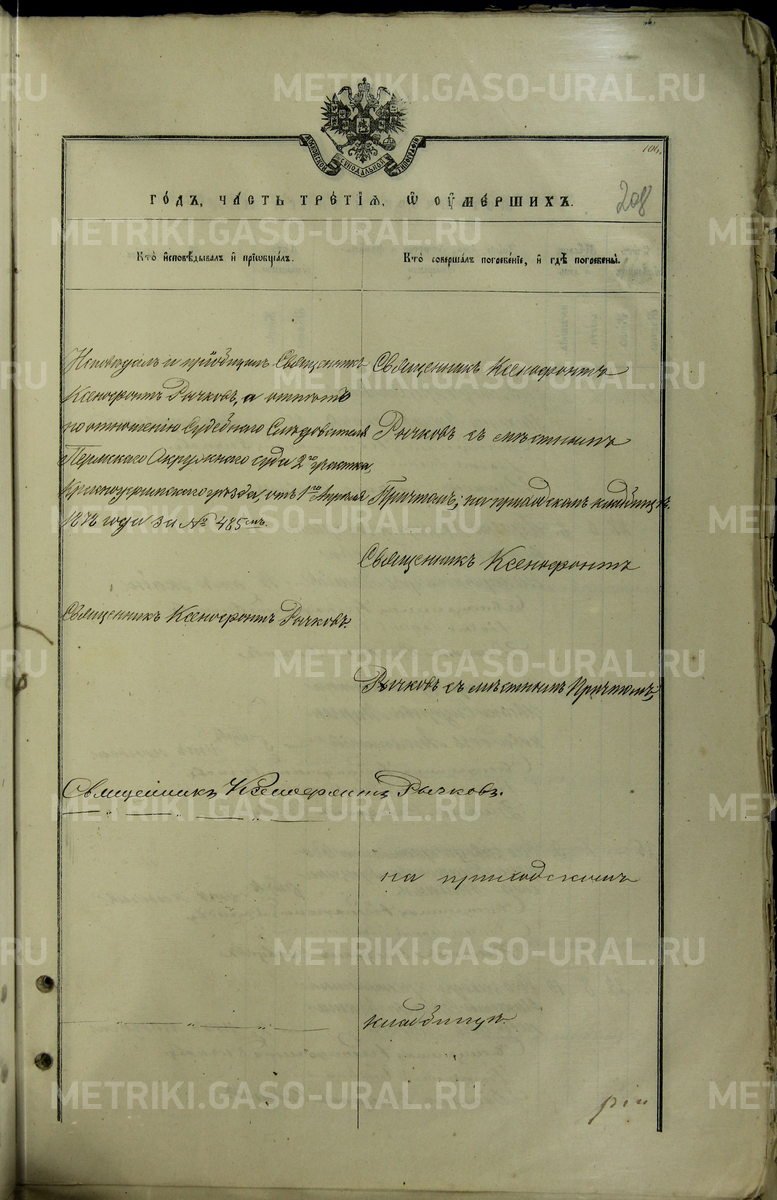 METRIKI.GASO-URAL.RU
106.
208
ГОДЪ, ЧАСТЬ ТРЕТІѦ, Ѡ ОУМЕРШИХЪ.
Кто исповѣдывалъ и пріобщалъ.
Кто совершалъ погребеніе, и гдѣ погребены.
Исповѣдалъ и пріобщалъ Священникъ
Ксенофонтъ Рычковъ, а отпѣтъ
по отношенію Судебнаго Слѣдователя
Пермскаго Окружнаго суда 2го участка
Красноуфимскаго уѣзда, отъ 1го Апреля
1878 года за № 485мъ.
Священникъ Ксенофонтъ Рычковъ.
Священникъ Ксенофонтъ Рычковъ.
Священникъ Ксенофонтъ
Рычковъ съ мѣстнымъ
Причтомъ, на приходскомъ кладбищѣ.
Священникъ Ксенофонтъ
Рычковъ съ мѣстнымъ Причтомъ,
на приходскомъ
кладбищѣ.